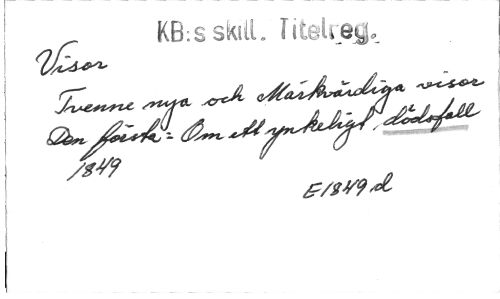 KB:s skill. Titelreg.
Visor
Tvenne nya och Märkvärdiga visor
Den första = Om ett ynkeligt dödsfall
1849
E1849d